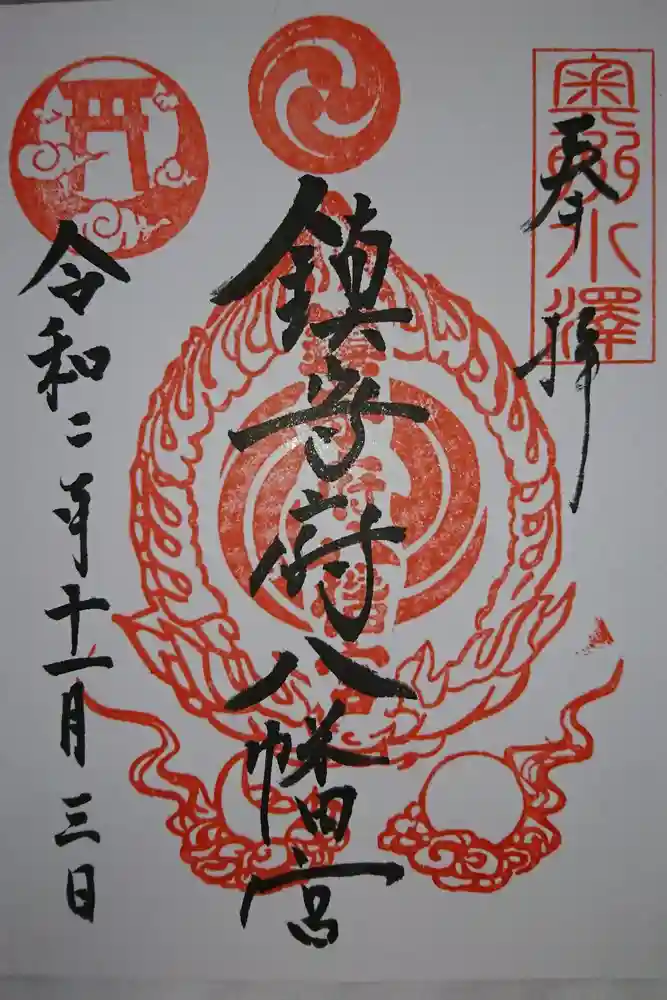 奥州水澤
奉拝
鎮守府八幡宮
令和二年十一月三日